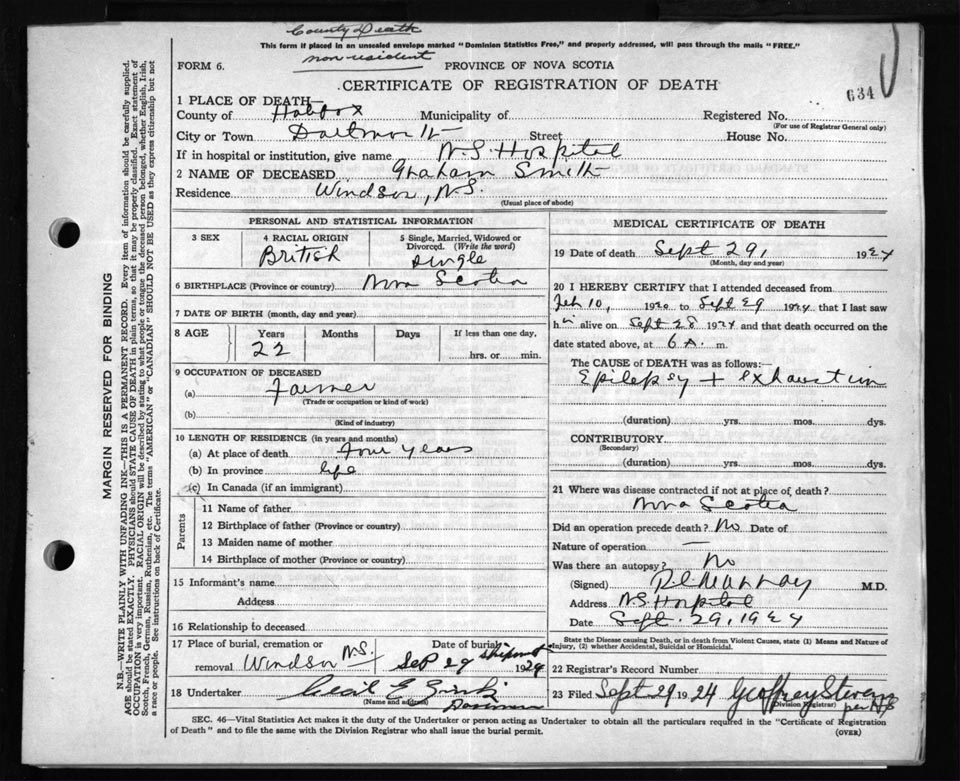 County Death
This form if placed in an unsealed envelope marked "Dominion Statistics Free," and properly addressed, will pass through the mails "FREE."
non-resident
FORM 6. PROVINCE OF NOVA SCOTIA
CERTIFICATE OF REGISTRATION OF DEATH
634
1 PLACE OF DEATH
County of Halifax Municipality of Registered No.
(For use of Registrar General only)
City or Town Dartmouth Street House No.
If in hospital or institution, give name N.S. Hospital
2 NAME OF DECEASED Graham Smith
Residence Windsor, N.S.
(Usual place of abode)
PERSONAL AND STATISTICAL INFORMATION
3 SEX 4 RACIAL ORIGIN 5 Single, Married, Widowed or Divorced. (Write the word)
British Single
6 BIRTHPLACE (Province or country) Nova Scotia
7 DATE OF BIRTH (month, day and year)
8 AGE Years Months Days If less than one day,
22 hrs. or min.
9 OCCUPATION OF DECEASED
(a) Farmer
(Trade or occupation or kind of work)
(b)
(Kind of industry)
10 LENGTH OF RESIDENCE (in years and months)
(a) At place of death four years
(b) In province life
(c) In Canada (if an immigrant)
Parents
11 Name of father
12 Birthplace of father (Province or country)
13 Maiden name of mother
14 Birthplace of mother (Province or country)
15 Informant's name
Address
16 Relationship to deceased
17 Place of burial, cremation or Date of burial
removal Windsor N.S. Sep 29 1924
18 Undertaker Cecil E.
(Name and address)
MEDICAL CERTIFICATE OF DEATH
19 Date of death Sept 29, 1924
(Month, day and year)
20 I HEREBY CERTIFY that I attended deceased from
Feb 10, 1920 to Sept 29 1924, that I last saw
him alive on Sept 28 1924 and that death occurred on the
date stated above, at 6 A. m.
The CAUSE OF DEATH was as follows:
Epilepsy + exhaustion
(duration) yrs. mos. dys.
CONTRIBUTORY
(Secondary)
(duration) yrs. mos. dys.
21 Where was disease contracted if not at place of death?
Nova Scotia
Did an operation precede death? No Date of
Nature of operation —
Was there an autopsy? No
(Signed) Murray M.D.
Address N.S. Hospital
Date Sept. 29, 1924
State the Disease causing Death, or in death from Violent Causes, state (1) Means and Nature of
Injury, (2) whether Accidental, Suicidal or Homicidal.
22 Registrar's Record Number
23 Filed Sept 29 1924 Geoffrey Stevens
(Division Registrar)
per
SEC. 46—Vital Statistics Act makes it the duty of the Undertaker or person acting as Undertaker to obtain all the particulars required in the "Certificate of Registration
of Death" and to file the same with the Division Registrar who shall issue the burial permit.
(OVER)
MARGIN RESERVED FOR BINDING
N.B.—WRITE PLAINLY WITH UNFADING INK—THIS IS A PERMANENT RECORD. Every item of information should be carefully supplied.
AGE should be stated EXACTLY. PHYSICIANS should STATE CAUSE OF DEATH in plain terms, so that it may be properly classified. Exact statement of
OCCUPATION is very important. RACIAL ORIGIN will be described by stating to what people or tongue the deceased person belonged, whether English, Irish,
Scotch, French, German, Russian, Ruthenian, etc. The terms "AMERICAN" or "CANADIAN" SHOULD NOT BE USED as they express citizenship but not
a race or people. See instructions on back of Certificate.